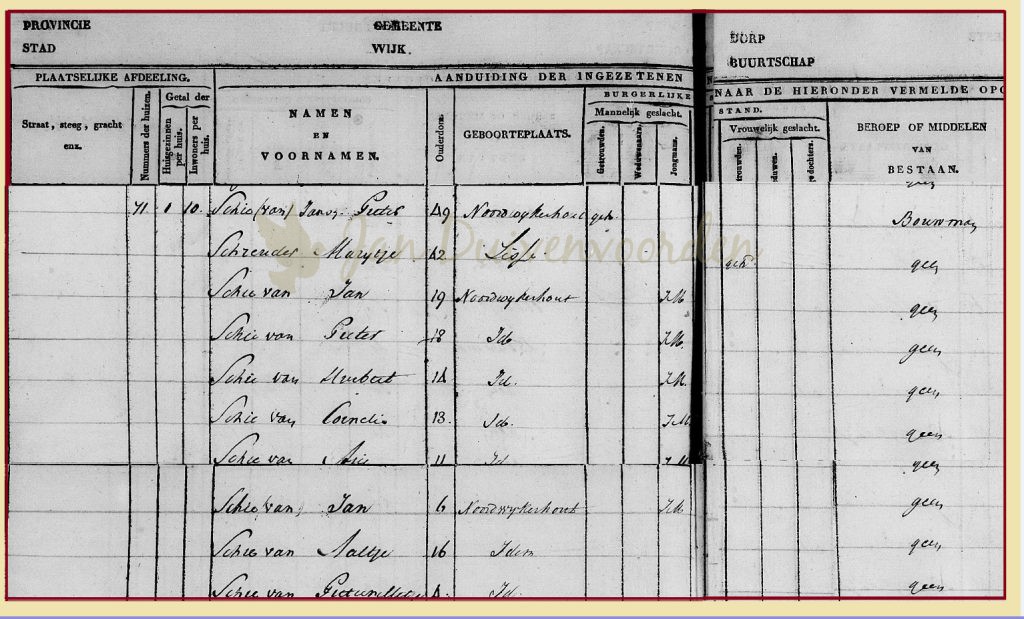 PROVINCIE GEMEENTE DORP
STAD WIJK. BUURTSCHAP
PLAATSELIJKE AFDEELING. AANDUIDING DER INGEZETENEN NAAR DE HIERONDER VERMELDE OPG
Straat, steeg, gracht enz.
Nummers der huizen.
Getal der
Huisgezinnen per huis.
Inwoners per huis.
NAMEN
EN
VOORNAMEN.
Ouderdom.
GEBOORTEPLAATS.
BURGERLIJKE STAND.
Mannelijk geslacht.
Getrouwden.
Weduwenaars.
Jongmans.
Vrouwelijk geslacht.
trouwden.
duwen.
dochters.
BEROEP OF MIDDELEN
VAN
BESTAAN.
71 1 10. Schie (van) Pieter 49 Noordwykerhout geh. Bouwman
Schrender Marytje 42 Lisse geh. geen
Schie van Jan 19 Noordwykerhout J.M. geen
Schie van Pieter 18 Id. J.M. geen
Schie van Huibert 14 Id. J.M. geen
Schie van Cornelis 13. Id. J.M. geen
Schie van Arie 11 Id J.M geen
Schie (van) Jan 6 Noordwykerhout J.M. geen
Schie van Aaltje 16 Idem geen
Schie van 4. Id. geen
Jan Duivenvoorden